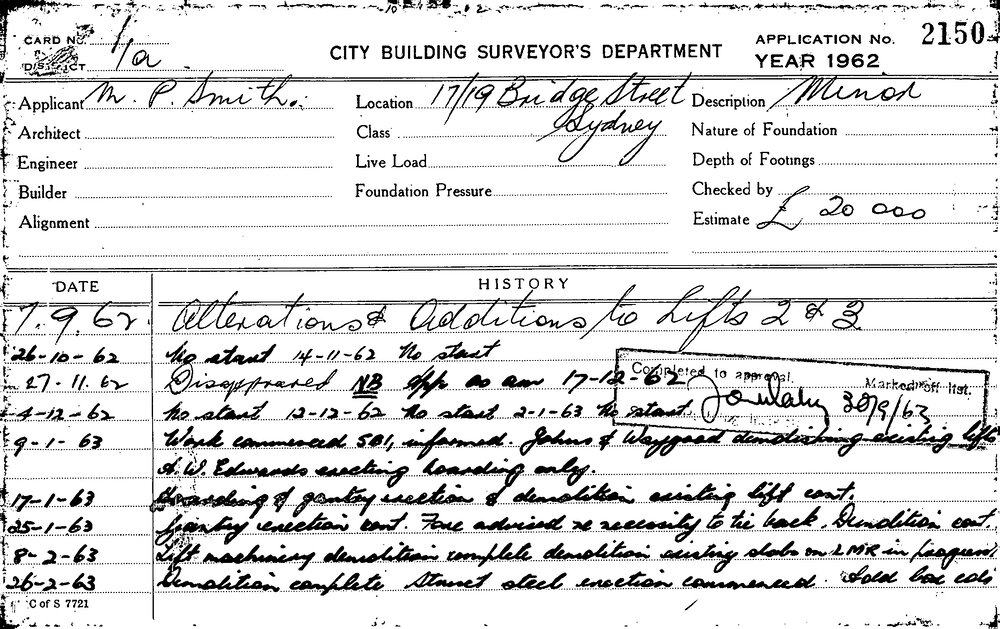 CARD No. 1/1a
DISTRICT
CITY BUILDING SURVEYOR'S DEPARTMENT
APPLICATION No. 2150
YEAR 1962
Applicant M. P. Smith. Location 17/19 Bridge Street Description Minor
Sydney
Architect Class Nature of Foundation
Engineer Live Load Depth of Footings
Builder Foundation Pressure Checked by
Alignment Estimate £ 20 000
DATE HISTORY
7.9.62. Alterations & Additions to Lifts 2 & 3
26-10-62 No start 14-11-62 No start
27.11.62 Disapproved NB app as am 17-12-62
Completed to approval. Marked off list.
30/9/63
4-12-62 No start 12-12-62 No start 2-1-63 No start
9-1-63 Work commenced 581, informed. Johns & Waygood demolishing existing lifts
A. W. Edwards erecting hoarding only.
17-1-63 Hoarding & gantry erection & demolition existing lift cont.
25-1-63 Gantry erection cont. Fore advised re necessity to tie back. Demolition cont.
8-2-63 Lift machinery demolition complete demolition existing slabs on LMR in progress.
26-2-63 Demolition complete Struct steel erection commenced. Sold box cols
C of S 7721